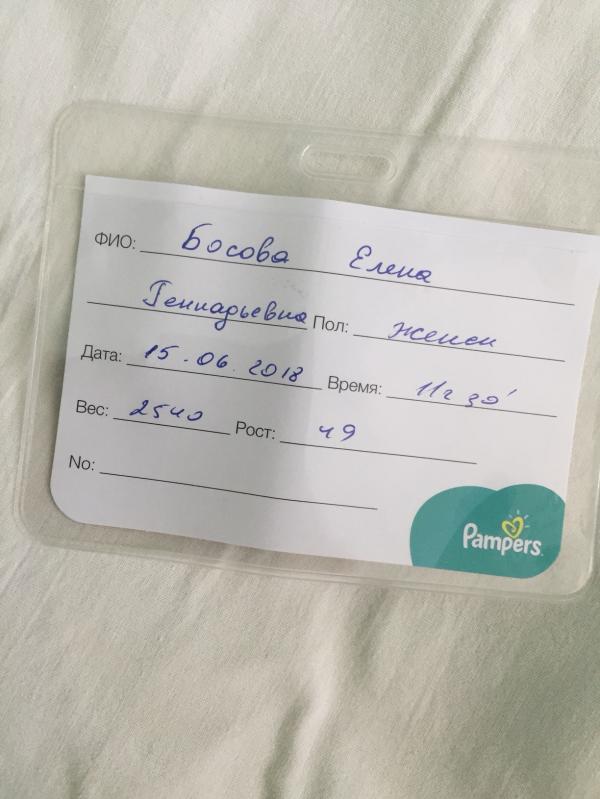 ФИО: Босова Елена
Геннадьевна Пол: женск
Дата: 15.06.2018 Время: 11ч 30'
Вес: 2540 Рост: 49
No:
Pampers